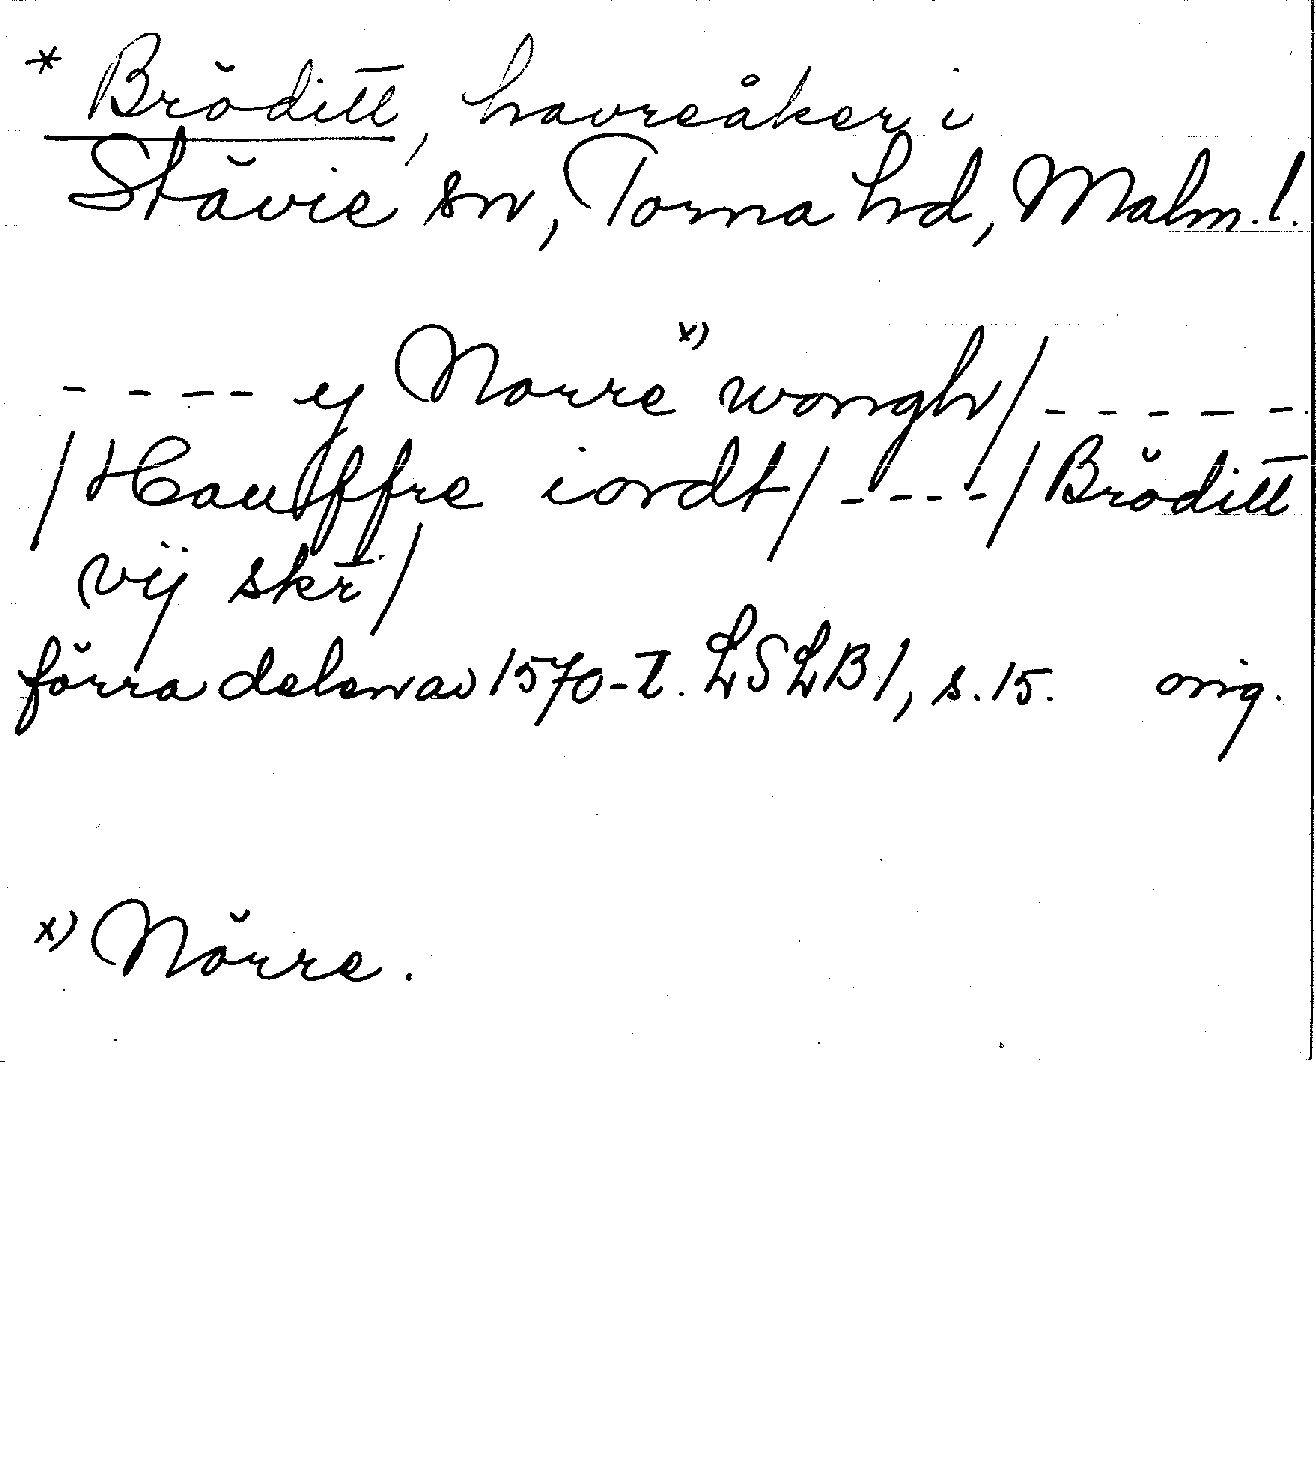 * Bröditt, havreåker i
Stävie sn, Torna hd, Malm. l.
- - - - ej Norre x) wongh/ - - - - -
/Hauffre iordt/ - - - -/ Bröditt
vij skr̄/
förra delen av 1570-t. LSLB 1, s. 15. orig.
x) Nörre.